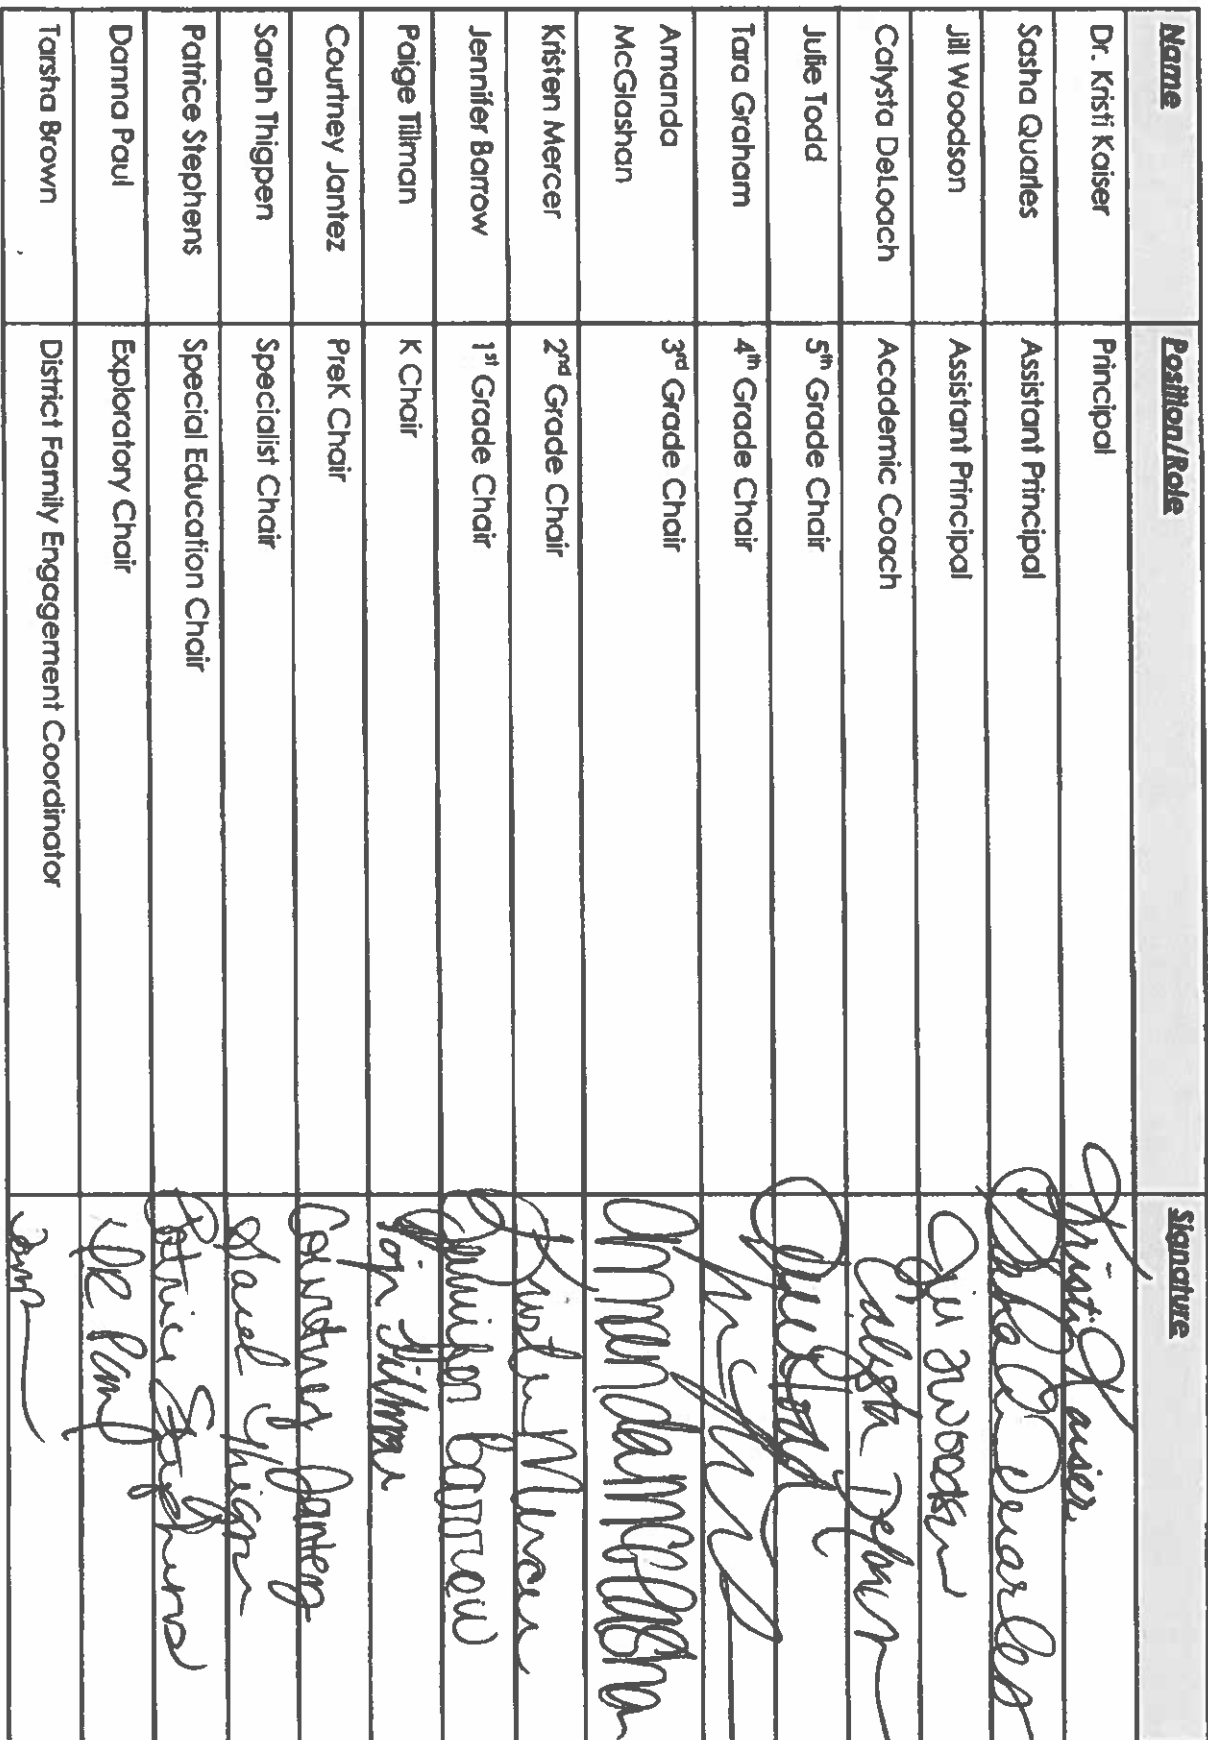 Name Position/Role Signature
Dr. Kristi Kaiser Principal Kristi Kaiser
Sasha Quarles Assistant Principal Sasha Quarles
Jill Woodson Assistant Principal Jill Woodson
Calysta DeLoach Academic Coach Calysta
Julie Todd 5th Grade Chair Julie Todd
Tara Graham 4th Grade Chair
Amanda
McGlashan 3rd Grade Chair Amanda
Kristen Mercer 2nd Grade Chair Kristen Mercer
Jennifer Barrow 1st Grade Chair Jennifer Barrow
Paige Tillman K Chair Paige Tillman
Courtney Jantez PreK Chair Courtney Jantez
Sarah Thigpen Specialist Chair Sarah Thigpen
Patrice Stephens Special Education Chair Patrice Stephens
Danna Paul Exploratory Chair
Tarsha Brown District Family Engagement Coordinator